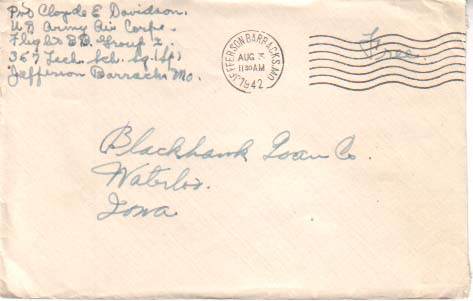 Pvt Cloyde E Davidson.
US Army Air Corps.
Flight Ed. Group I.
367 Tech. Sch. Sq. (Sp)
Jefferson Barracks Mo.
JEFFERSON BARRACKS, MO.
AUG 3
11 30 AM
1942
Free
Blackhawk Loan Co.
Waterloo.
Iowa